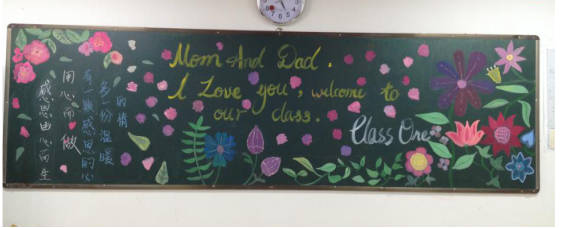 Mom And Dad.
I Love you, welcome to
our class.
Class One
感恩由心而生
用心而做
有一颗感恩的心
多一份温暖
的情